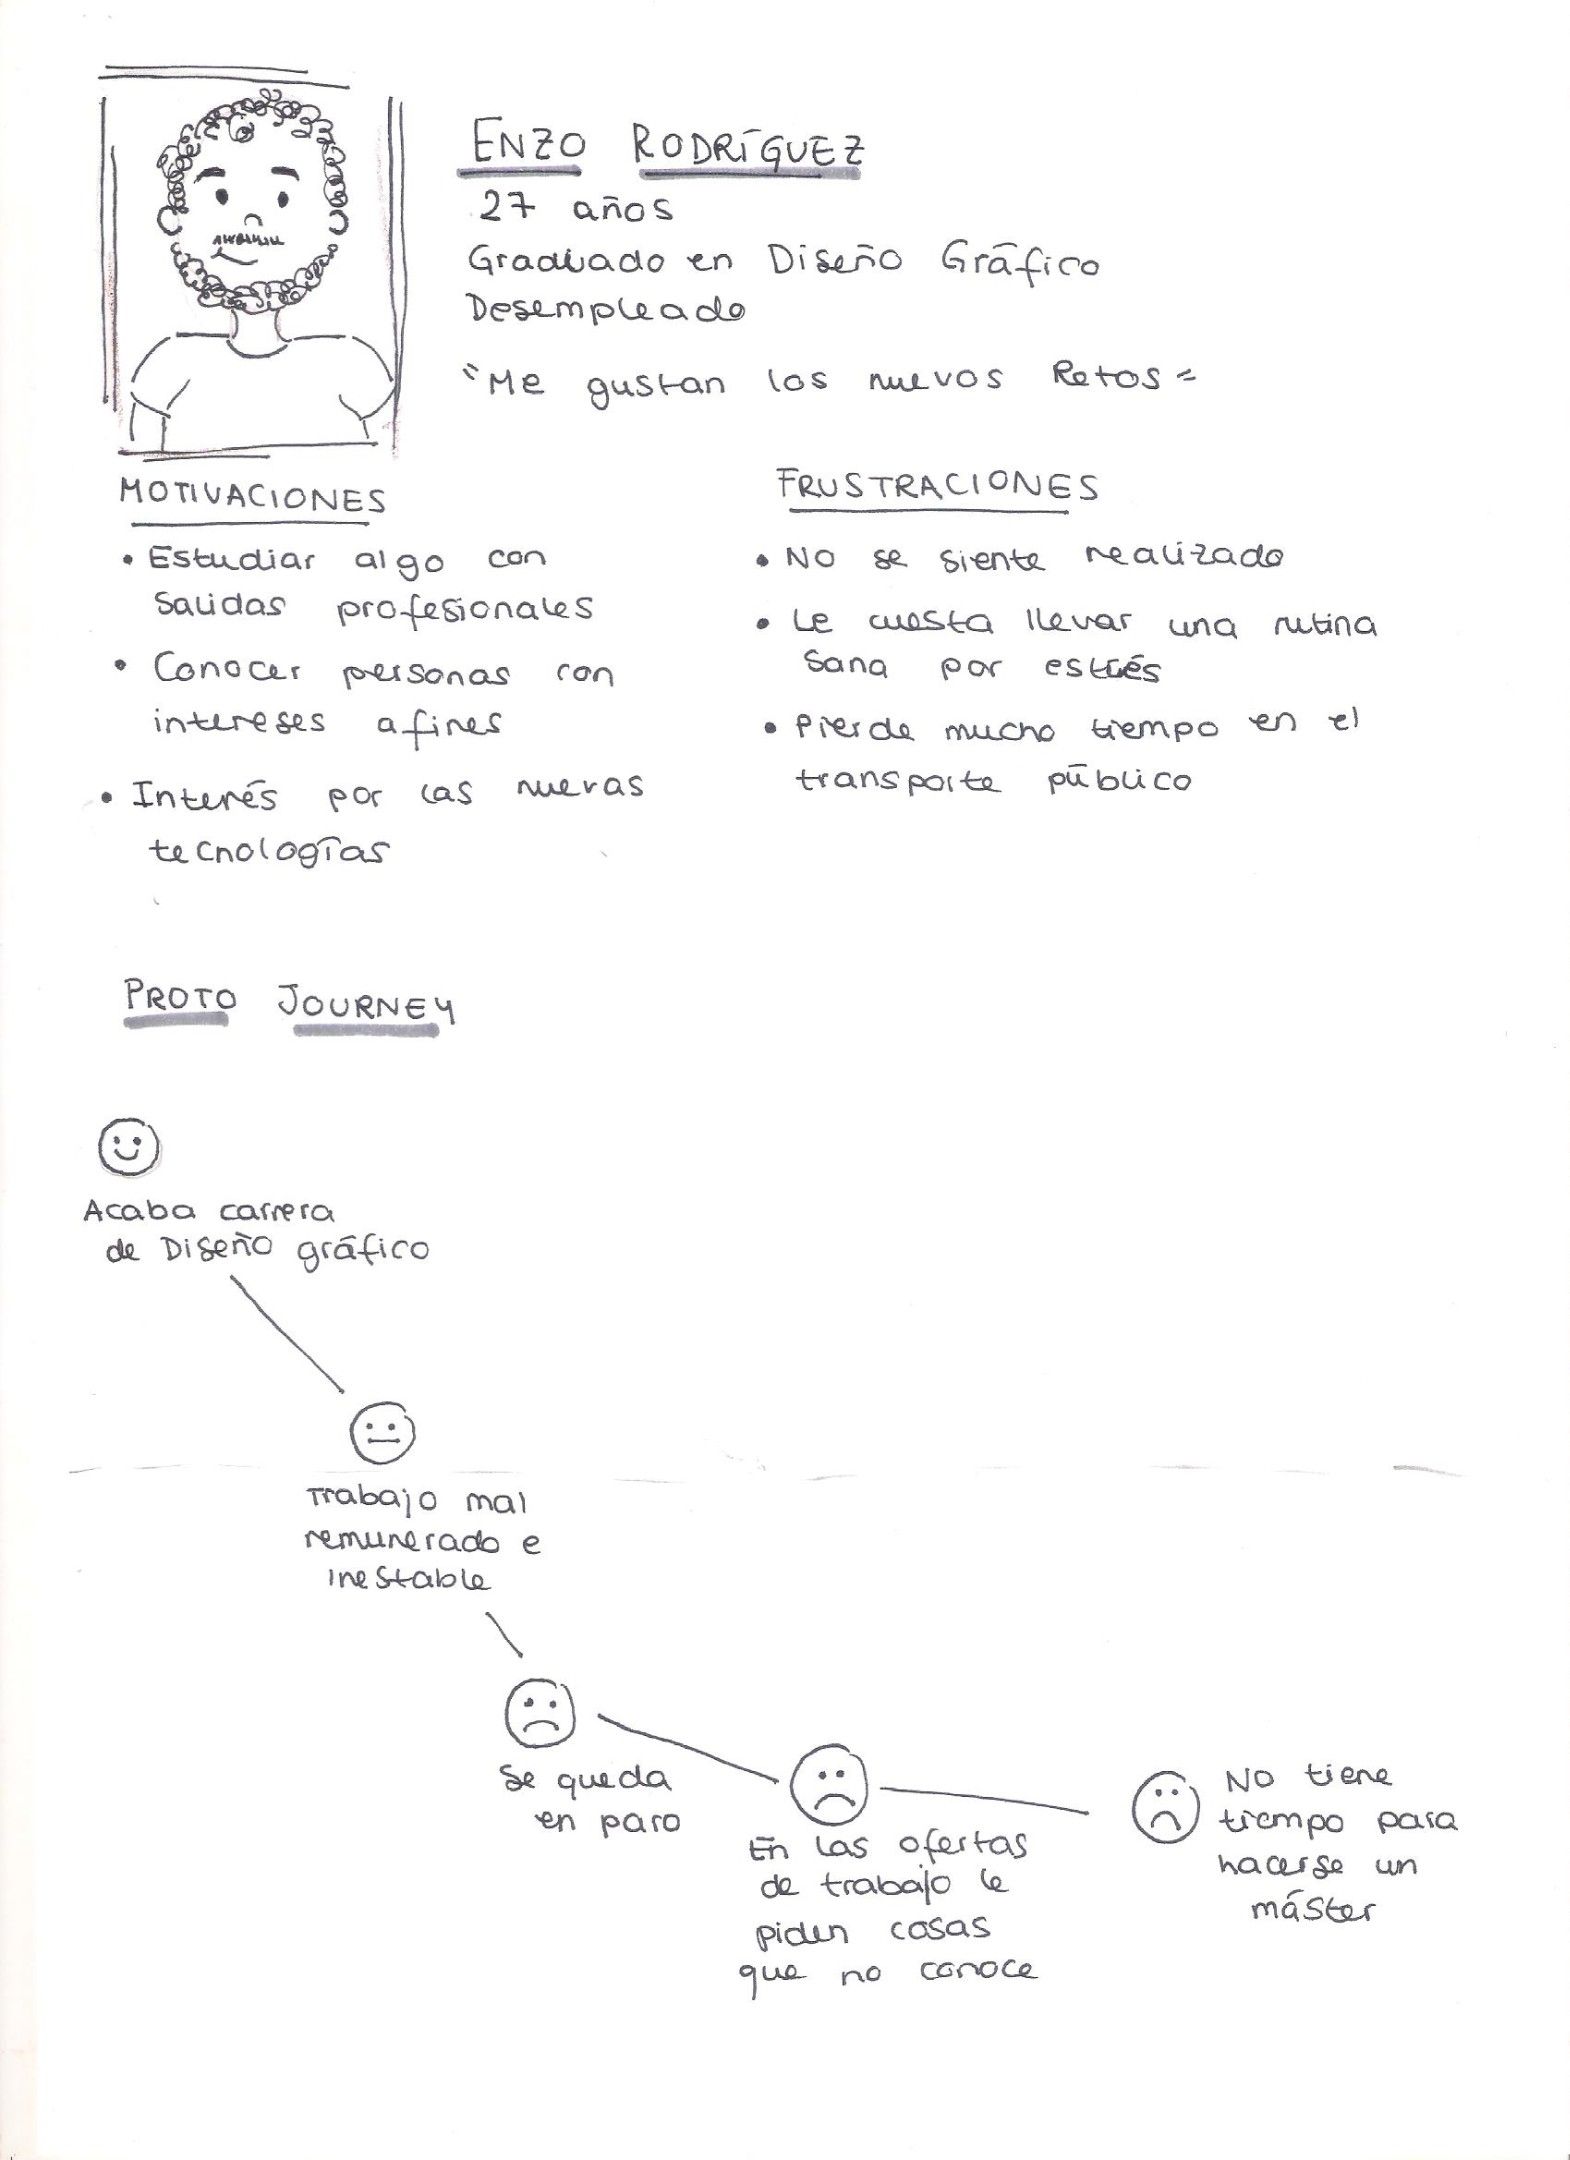 ENZO RODRÍGUEZ
27 años
Graduado en Diseño Gráfico
Desempleado
"Me gustan los nuevos Retos"
MOTIVACIONES
• Estudiar algo con
salidas profesionales
• Conocer personas con
intereses afines
• Interés por las nuevas
tecnologías
FRUSTRACIONES
• No se siente realizado
• Le cuesta llevar una rutina
sana por estrés
• Pierde mucho tiempo en el
transporte público
PROTO JOURNEY
Acaba carrera
de Diseño gráfico
Trabajo mal
remunerado e
inestable
Se queda
en paro
En las ofertas
de trabajo le
piden cosas
que no conoce
No tiene
tiempo para
hacerse un
máster